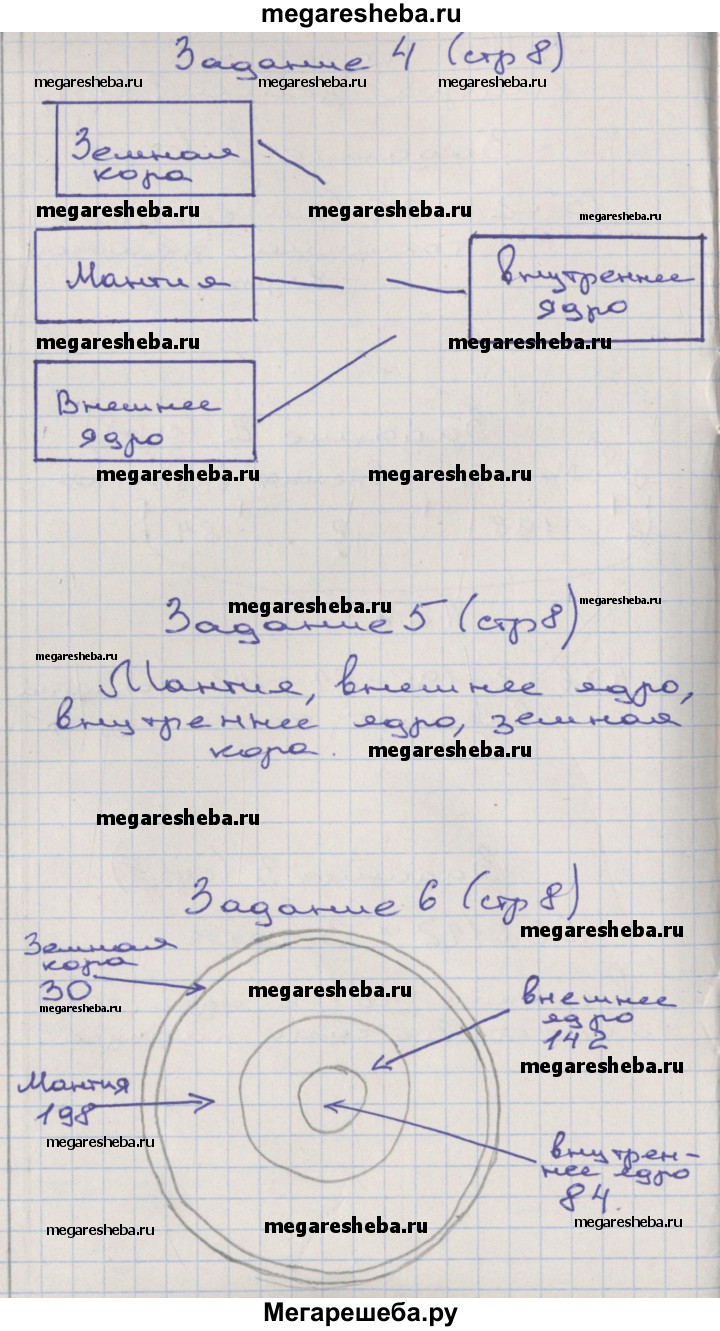 megaresheba.ru
Задание 4 (стр 8)
megaresheba.ru megaresheba.ru megaresheba.ru
Земная
кора
megaresheba.ru megaresheba.ru megaresheba.ru
Мантия
внутреннее
ядро
megaresheba.ru megaresheba.ru
Внешнее
ядро
megaresheba.ru megaresheba.ru
megaresheba.ru megaresheba.ru
Задание 5 (стр 8)
megaresheba.ru
Мантия, внешнее ядро,
внутреннее ядро, земная
кора.
megaresheba.ru
megaresheba.ru
Задание 6 (стр 8)
megaresheba.ru
Земная
кора
30
megaresheba.ru
megaresheba.ru
внешнее
ядро
142
megaresheba.ru
Мантия
198
megaresheba.ru
внутрен-
нее ядро
84.
megaresheba.ru
megaresheba.ru megaresheba.ru
Мегарешеба.ру